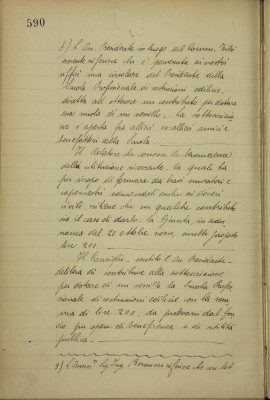 590
8) L'On. Presidente in luogo del Comm.
riferisce che è pervenuta ai nostri
uffici una circolare del Presidente della
Scuola Professionale di costruzioni edilizie,
diretta ad ottenere un contributo per dotare
una scuola di un vessillo. La sottoscrizio
ne è aperta fra allievi ex allievi amici e
benefattori della Scuola.
Il relatore che conosce la
della istituzione ricorrente, la quale ha
per iscopo di formare dei bravi muratori e
capomastri educandoli anche ai doveri
civili, ritiene che un qualche contributo
sia il caso di darlo. La Giunta, in adu
nanza del 20 ottobre scorso, avrebbe proposto
lire 200.
Il Consiglio, sentito l'On. Presidente
delibera di contribuire alla sottoscrizione
per dotare di un vessillo la Scuola Profes
sionale di costruzioni edilizie con la som
ma di lire 200, da prelevarsi dal fon
do per opere di beneficenza e di utilità
pubblica.
9) L'Amm. Ing. riferisce che con